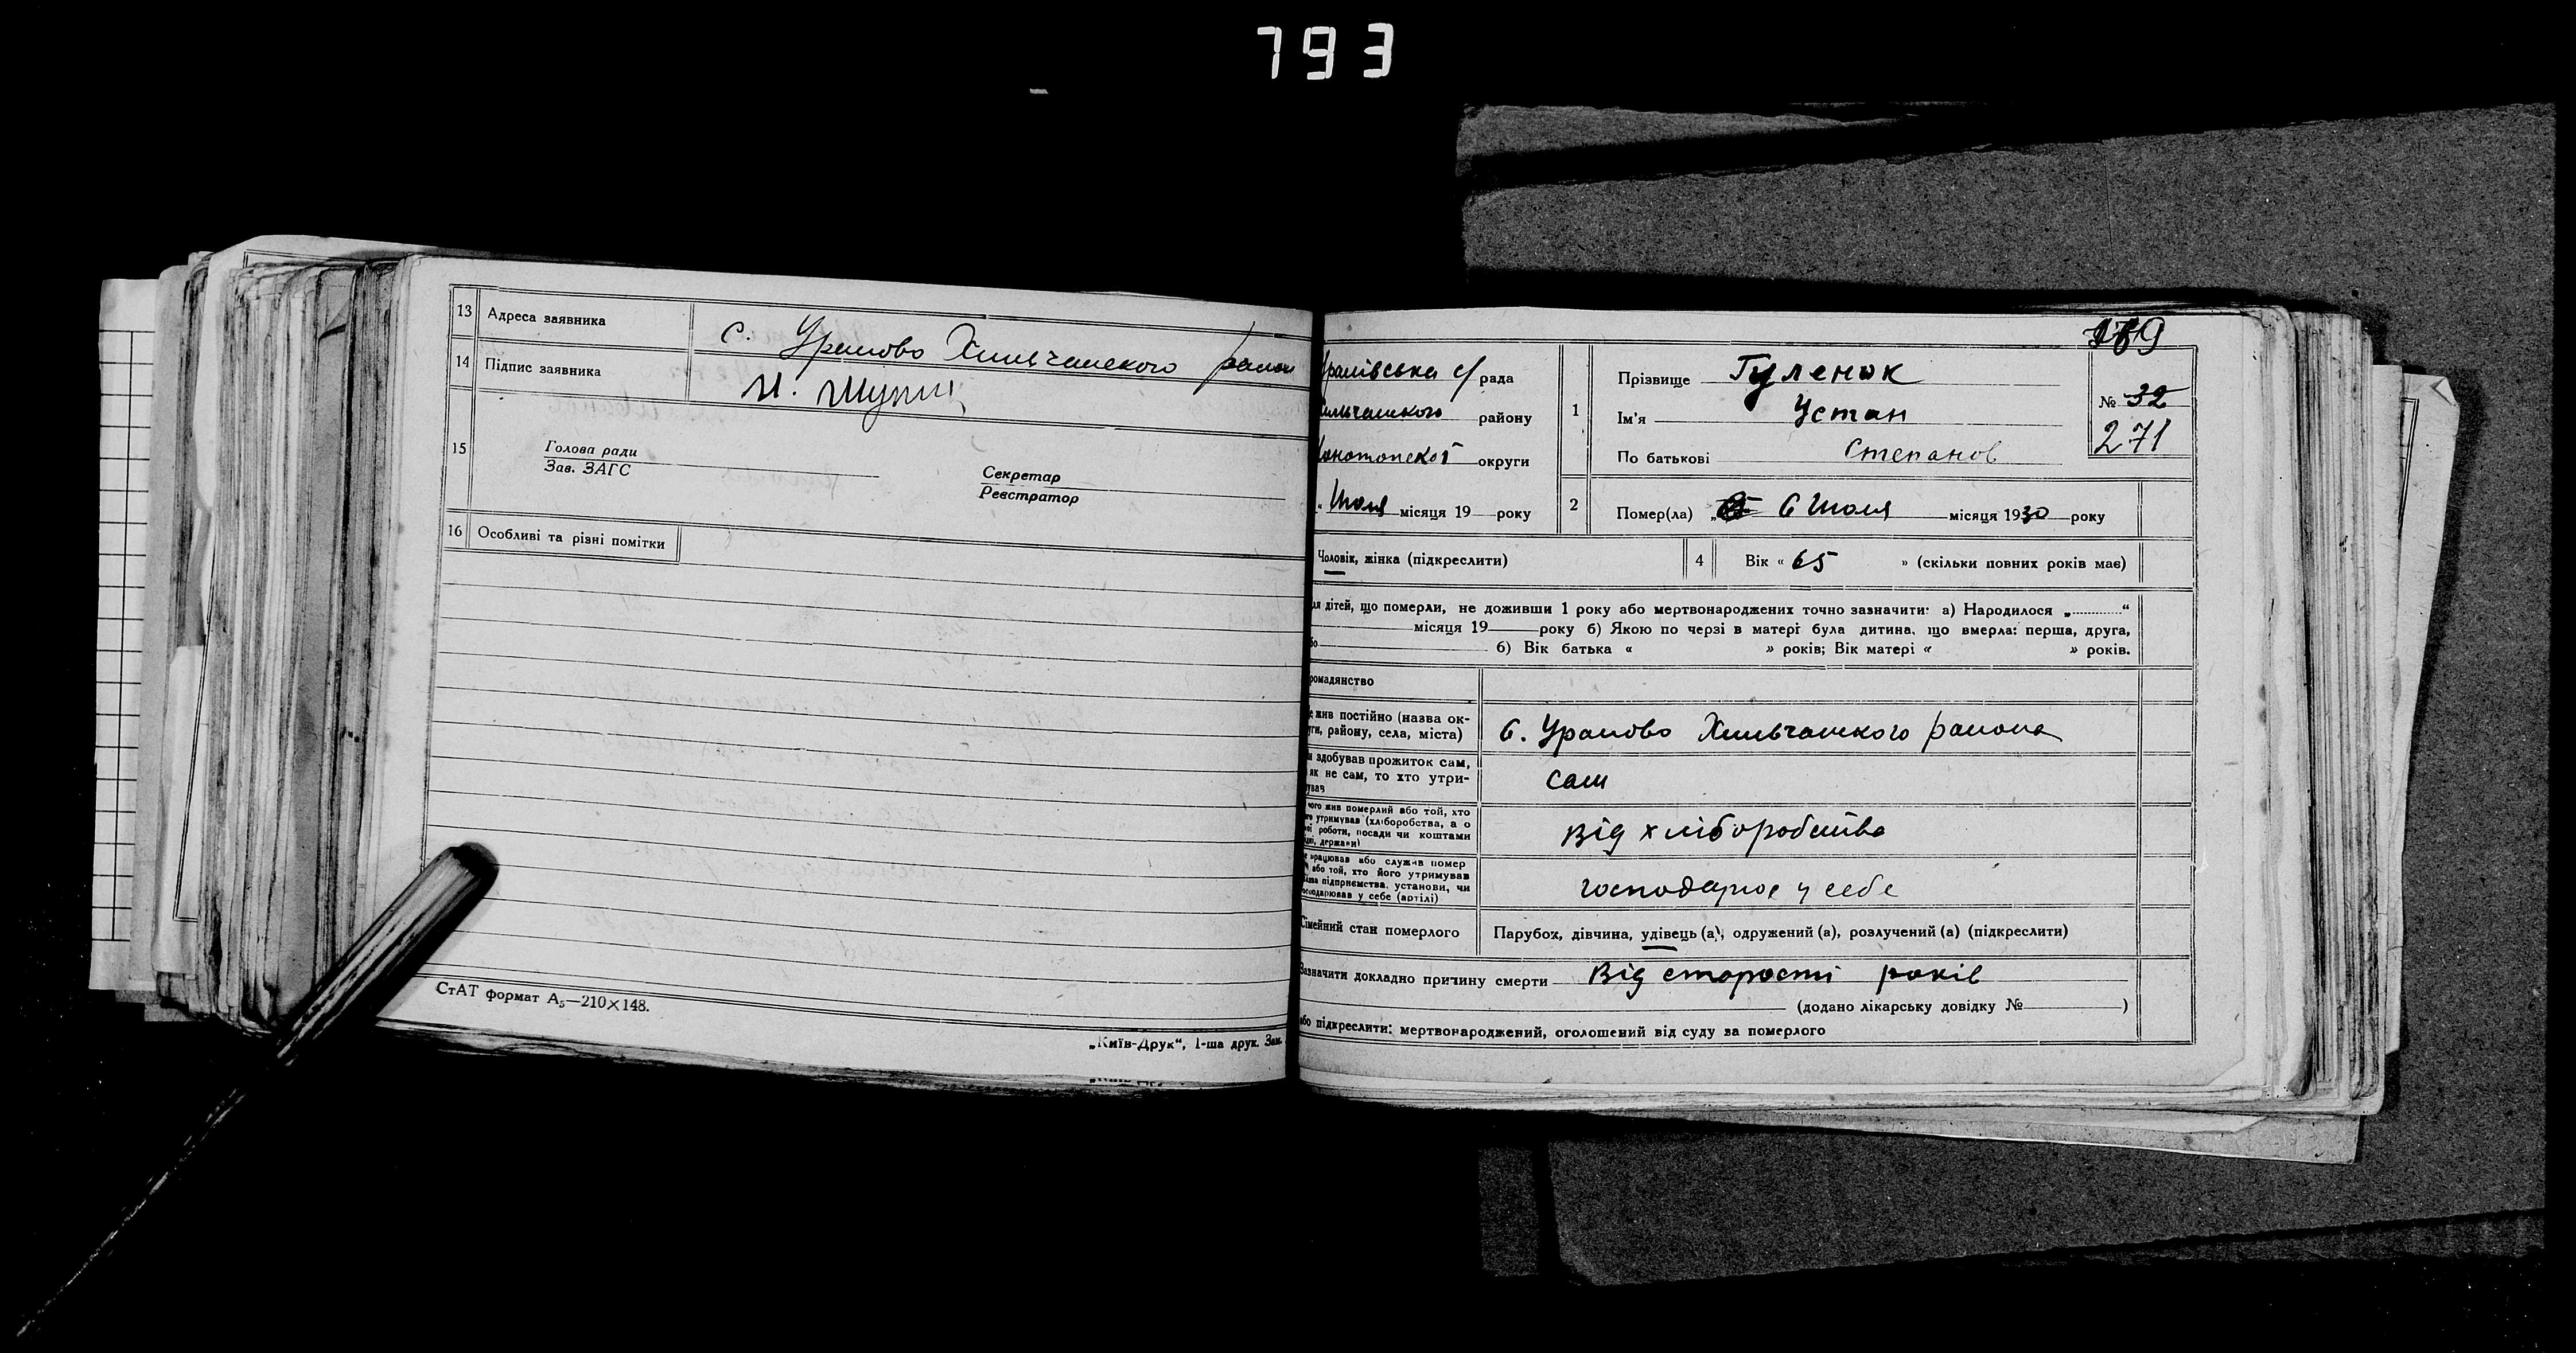 793
13 Адреса заявника с. Уралово Хильчанского район
14 Підпис заявника И.
15 Голова ради
Зав. ЗАГС
Секретар
Реєстратор
16 Особливі та різні помітки
СтАТ формат А₅—210×148.
„Київ-Друк“, 1-ша друк. Зам.
169
ралівська с/рада
ильчанського району
онотопскої округи
„ Июля місяця 19 року
1 Прізвище Гуленок
Ім'я Устан
По батькові Степанов
№ 32
271
2 Помер(ла) „ 6 Июля місяця 1930 року
Чоловік, жінка (підкреслити)
4 Вік « 65 » (скільки повних років має)
ля дітей, що померли, не доживши 1 року або мертвонароджених точно зазначити: а) Народилося „............“
місяця 19 року б) Якою по черзі в матері була дитина, що вмерла: перша, друга,
бо б) Вік батька « » років; Вік матері « » років.
ромадянство
е жив постійно (назва ок-
уги, району, села, міста)
С. Уралово Хильчанского района
и здобував прожиток сам,
як не сам, то хто утри-
ував
сам
чого жив померлий або той, хто
го утримував (хліборобства, а о
ої роботи, посади чи коштами
ідні, держави)
Від хліборобства
е працював або служив помер
й або той, хто його утримував
азва підприємства, установи, чи
осподарював у себе (артілі)
господарює у себе
Сімейний стан померлого
Парубох, дівчина, удівець (а), одружений (а), розлучений (а) (підкреслити)
Зазначити докладно причину смерти Від старости років
(додано лікарську довідку № )
або підкреслити: мертвонароджений, оголошений від суду за померлого